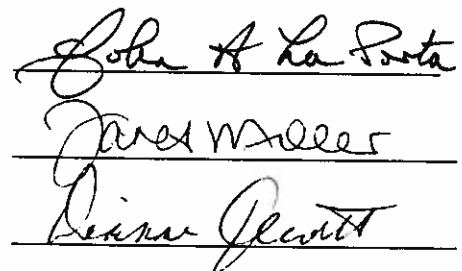 John A La Porta
Janet Miller
Dianne Jewitt